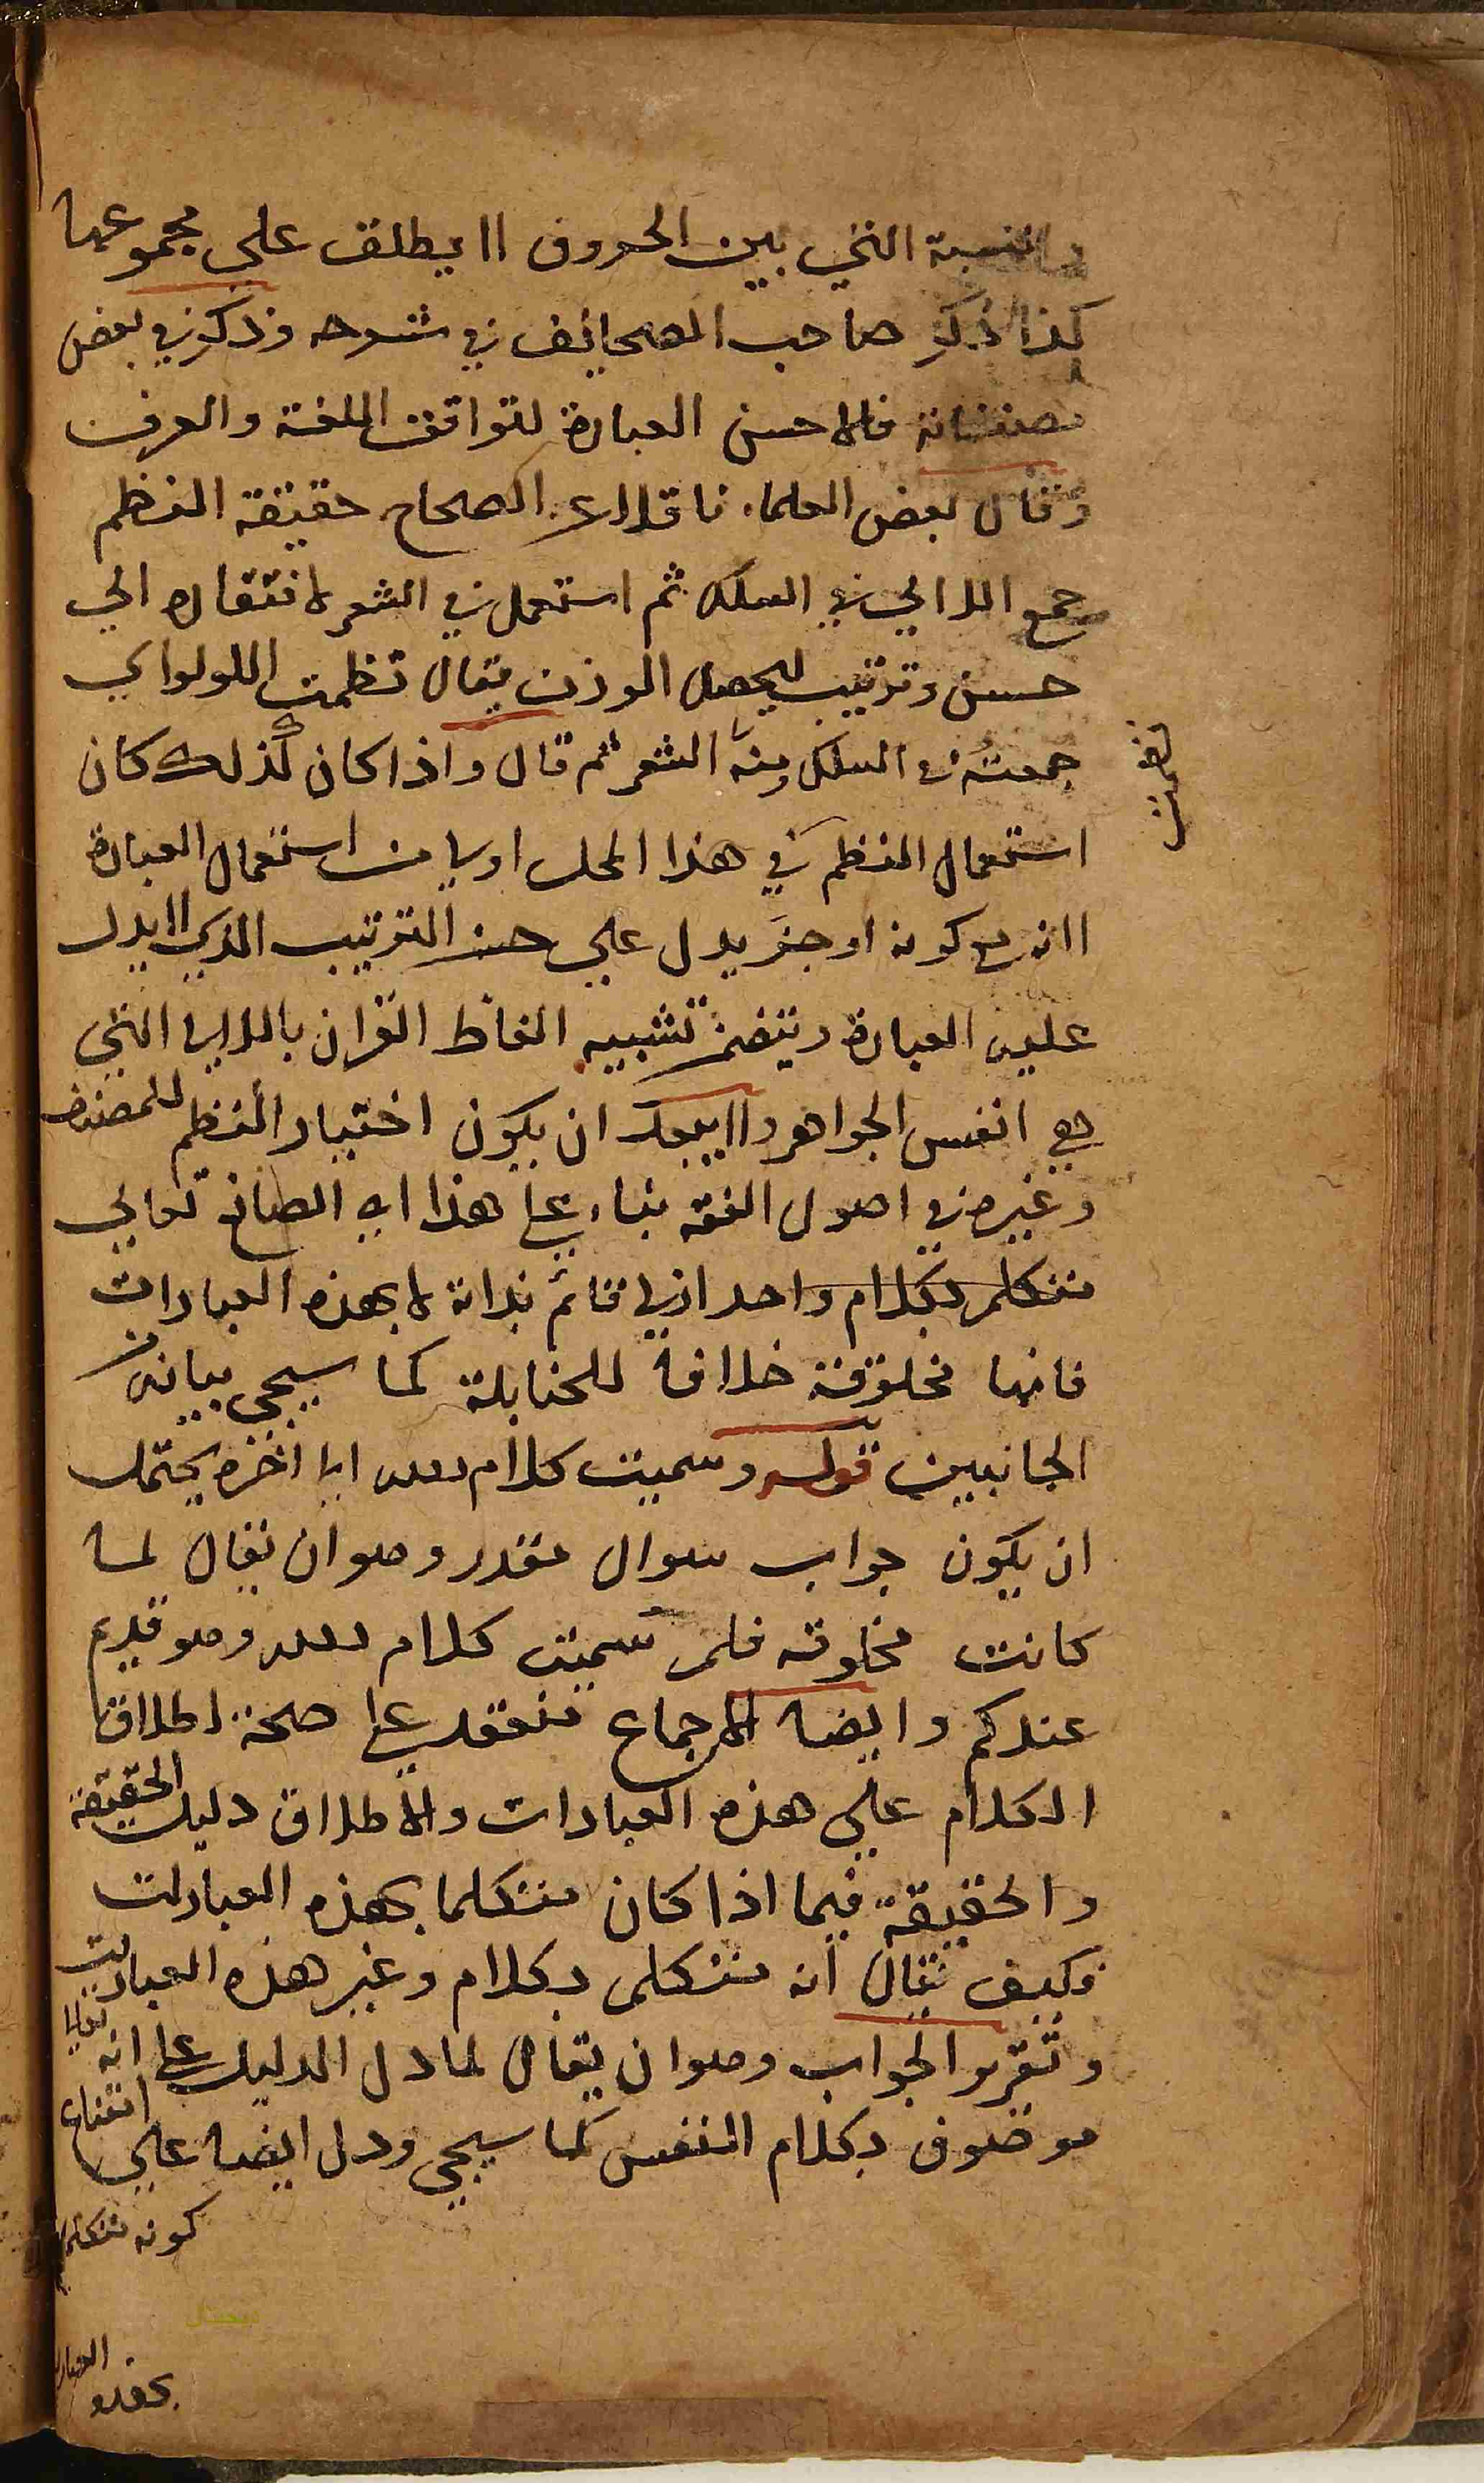 والنسبة التي بين الحروف اا يطلق علي مجموعها
كذا ذكر صاحب الصحائف في شرحه وذكر في بعض
مصنفاته فالاحسن العبارة لتوافق اللغة والعرف
وقال بعض العلماء ناقلا عن الصحاح حقيقة النظم
جمع اللالي في السلك ثم استعمل في الشعر لانتقاره الي
حسن وترتيب ليحصل الوزن يقال نظمت اللولو اي
جمعته في السلك ومنه الشعر ثم قال واذا كان كذلك كان
نظمت
استعمال النظم في هذا المحل اولي من استعمال العبارة
اانه مع كونه اوجز يدل علي حسن الترتيب الذي اا يدل
عليه العبارة ويتضمن تشبيه الفاظ القران باللالي التي
هي انفس الجواهر واا يبعد ان يكون اختيار النظم للمصنف
وغيره في اصول الفقه بناء علي هذا اي الصانع تعالي
متكلم بكلام واحد ازلي قائم بذاته لا بهذه العبارات
فانها مخلوقة خلافا للحنابلة كما سيجي بيانه من
الجانبين قوله وسميت كلام الله الي اخره يحتمل
ان يكون جواب سوال مقدر وهو ان يقال لما
كانت مخلوقه فلم سميت كلام الله وهو قديم
عندكم وايضا الاجماع منعقد علي صحة اطلاق
الكلام علي هذه العبارات والاطلاق دليل الحقيقة
والحقيقة فيما اذا كان متكلما بهذه العبارات
فكيف يقال انه متكلم بكلام وغير هذه العبارات
وتقرير الجواب وهو ان يقال لما دل الدليل علي انه تعالي
موصوف بكلام النفس كما سيجي ودل ايضا علي امتناع
كونه متكلما
بهذه العبارات